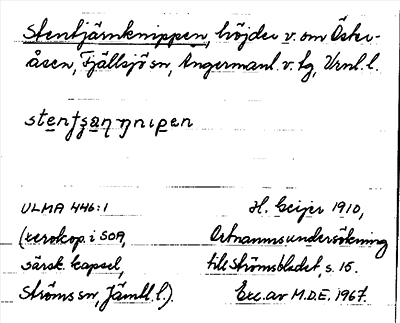 Stentjärnknippen, höjder v. om Öster-
åsen, Fjällsjö sn, Ångermanl. v. tg, Vrnl. l.
stentʒaṇ ŋnipen
ULMA 446:1
(xerokop. i SOA,
särsk. kapsel,
Ströms sn, Jämtl. l.).
H. Geijer 1910,
Ortnamnsundersökning
till Strömsbladet, s. 15.
Exc. av M.D.E. 1967.